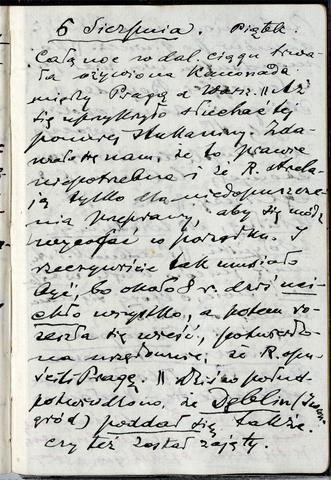 6 Sierpnia. Piątek
Całą noc w dal. ciągu trwa-
ła ożywiona kanonada
między Pragą a Warsz. || Aż
się uprzykrzyło słuchać tej
ponurej stukaniny. Zda-
wało się nam, że to prawie
niepotrzebne i że R. strzela-
ją tylko dla niedopuszcze-
nia przeprawy, aby się módz
wycofać w porządku. I
rzeczywiście tak musiało
być, bo około 8 r. dziś uci-
chło wszystko, a potem ro-
zeszła się wieść, potwierdzo-
na urzędownie, że R. opu-
ścili Pragę. || Dziś w połud.
potwierdzono, że Dęblin (Iwan-
gród) poddał się także.
czy też został zajęty.